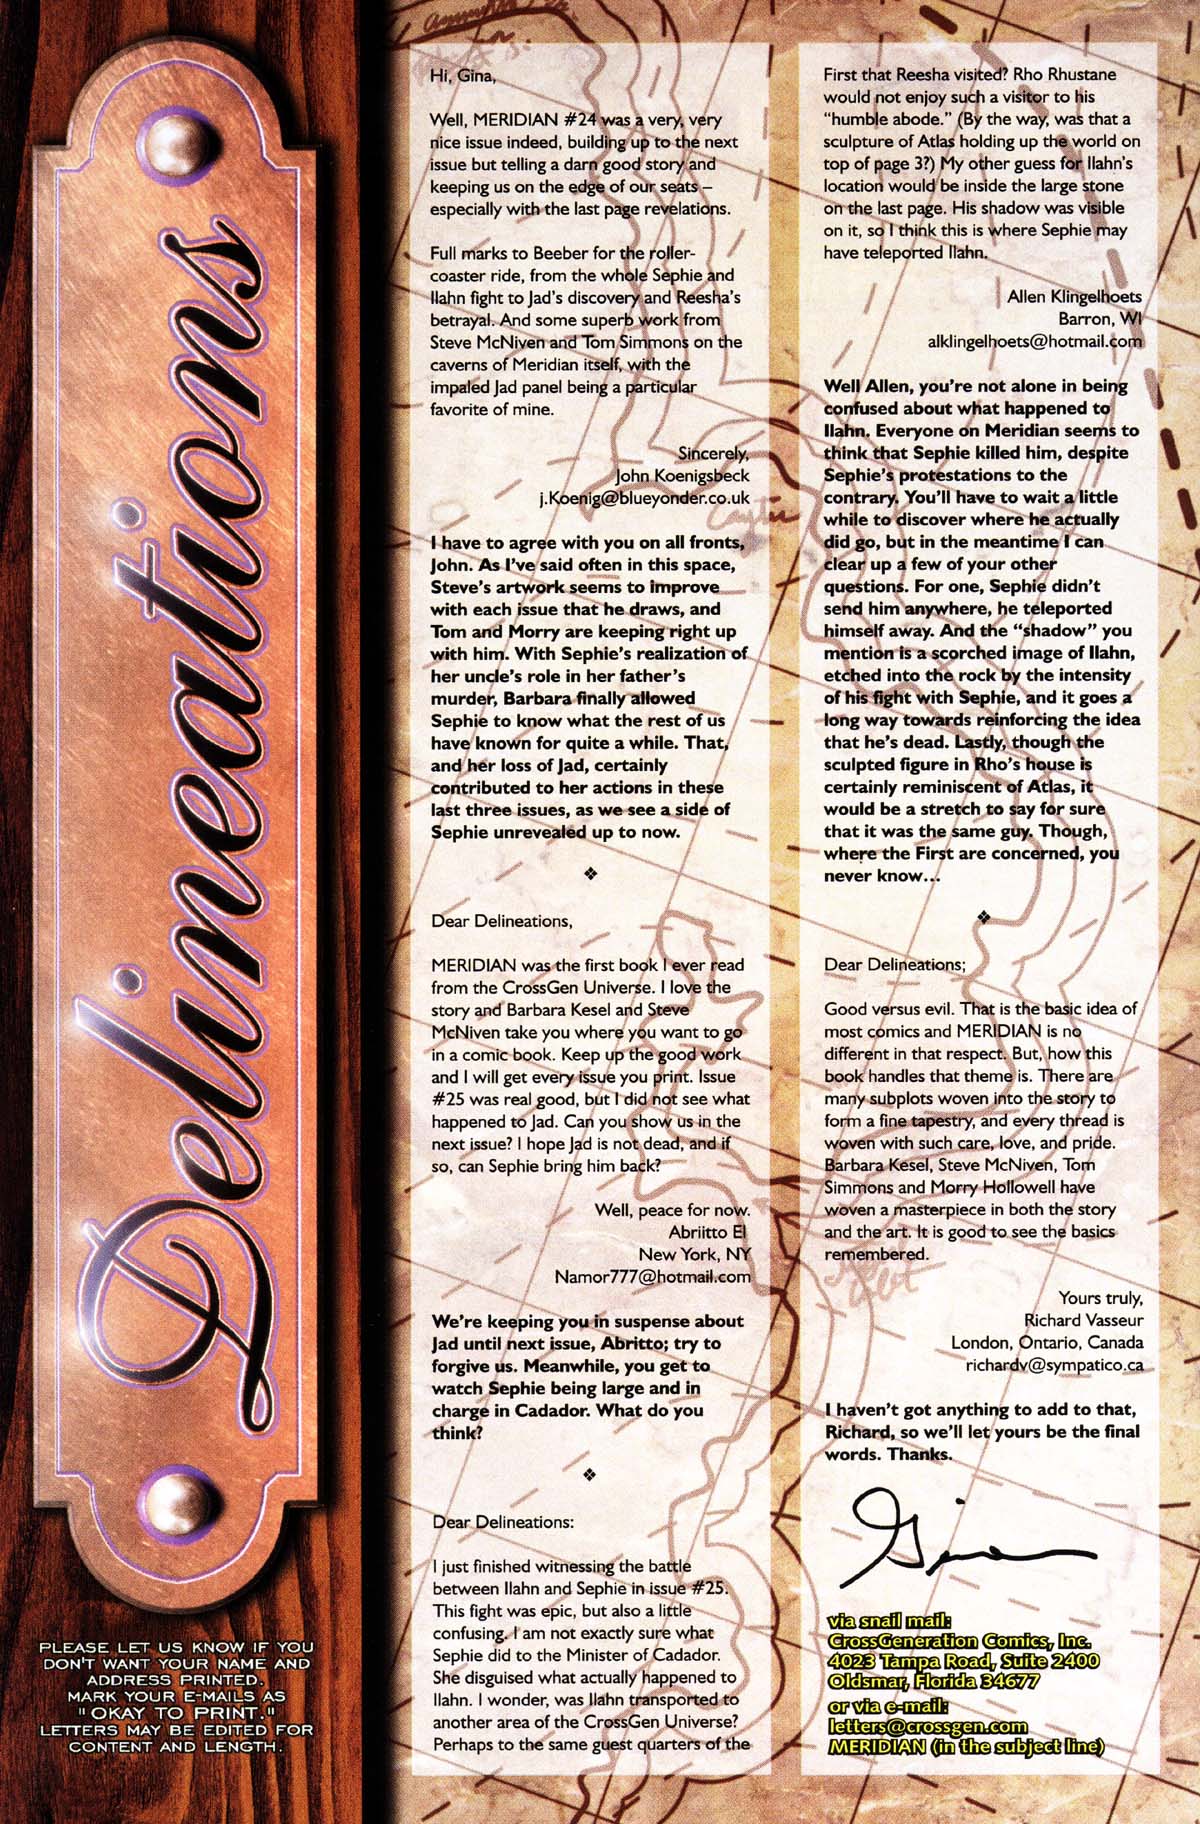 Delineations
PLEASE LET US KNOW IF YOU
DON'T WANT YOUR NAME AND
ADDRESS PRINTED.
MARK YOUR E-MAILS AS
"OKAY TO PRINT."
LETTERS MAY BE EDITED FOR
CONTENT AND LENGTH.
Hi, Gina,
Well, MERIDIAN #24 was a very, very
nice issue indeed, building up to the next
issue but telling a darn good story and
keeping us on the edge of our seats –
especially with the last page revelations.
Full marks to Beeber for the roller-
coaster ride, from the whole Sephie and
Ilahn fight to Jad's discovery and Reesha's
betrayal. And some superb work from
Steve McNiven and Tom Simmons on the
caverns of Meridian itself, with the
impaled Jad panel being a particular
favorite of mine.
Sincerely,
John Koenigsbeck
j.Koenig@blueyonder.co.uk
I have to agree with you on all fronts,
John. As I've said often in this space,
Steve's artwork seems to improve
with each issue that he draws, and
Tom and Morry are keeping right up
with him. With Sephie's realization of
her uncle's role in her father's
murder, Barbara finally allowed
Sephie to know what the rest of us
have known for quite a while. That,
and her loss of Jad, certainly
contributed to her actions in these
last three issues, as we see a side of
Sephie unrevealed up to now.
❖
Dear Delineations,
MERIDIAN was the first book I ever read
from the CrossGen Universe. I love the
story and Barbara Kesel and Steve
McNiven take you where you want to go
in a comic book. Keep up the good work
and I will get every issue you print. Issue
#25 was real good, but I did not see what
happened to Jad. Can you show us in the
next issue? I hope Jad is not dead, and if
so, can Sephie bring him back?
Well, peace for now.
Abriitto El
New York, NY
Namor777@hotmail.com
We're keeping you in suspense about
Jad until next issue, Abritto; try to
forgive us. Meanwhile, you get to
watch Sephie being large and in
charge in Cadador. What do you
think?
❖
Dear Delineations:
I just finished witnessing the battle
between Ilahn and Sephie in issue #25.
This fight was epic, but also a little
confusing. I am not exactly sure what
Sephie did to the Minister of Cadador.
She disguised what actually happened to
Ilahn. I wonder, was Ilahn transported to
another area of the CrossGen Universe?
Perhaps to the same guest quarters of the
First that Reesha visited? Rho Rhustane
would not enjoy such a visitor to his
“humble abode.” (By the way, was that a
sculpture of Atlas holding up the world on
top of page 3?) My other guess for Ilahn's
location would be inside the large stone
on the last page. His shadow was visible
on it, so I think this is where Sephie may
have teleported Ilahn.
Allen Klingelhoets
Barron, WI
alklingelhoets@hotmail.com
Well Allen, you're not alone in being
confused about what happened to
Ilahn. Everyone on Meridian seems to
think that Sephie killed him, despite
Sephie's protestations to the
contrary. You'll have to wait a little
while to discover where he actually
did go, but in the meantime I can
clear up a few of your other
questions. For one, Sephie didn't
send him anywhere, he teleported
himself away. And the “shadow” you
mention is a scorched image of Ilahn,
etched into the rock by the intensity
of his fight with Sephie, and it goes a
long way towards reinforcing the idea
that he's dead. Lastly, though the
sculpted figure in Rho's house is
certainly reminiscent of Atlas, it
would be a stretch to say for sure
that it was the same guy. Though,
where the First are concerned, you
never know...
❖
Dear Delineations;
Good versus evil. That is the basic idea of
most comics and MERIDIAN is no
different in that respect. But, how this
book handles that theme is. There are
many subplots woven into the story to
form a fine tapestry, and every thread is
woven with such care, love, and pride.
Barbara Kesel, Steve McNiven, Tom
Simmons and Morry Hollowell have
woven a masterpiece in both the story
and the art. It is good to see the basics
remembered.
Yours truly,
Richard Vasseur
London, Ontario, Canada
richardv@sympatico.ca
I haven't got anything to add to that,
Richard, so we'll let yours be the final
words. Thanks.
Gina
via snail mail:
CrossGeneration Comics, Inc.
4023 Tampa Road, Suite 2400
Oldsmar, Florida 34677
or via e-mail:
letters@crossgen.com
MERIDIAN (in the subject line)